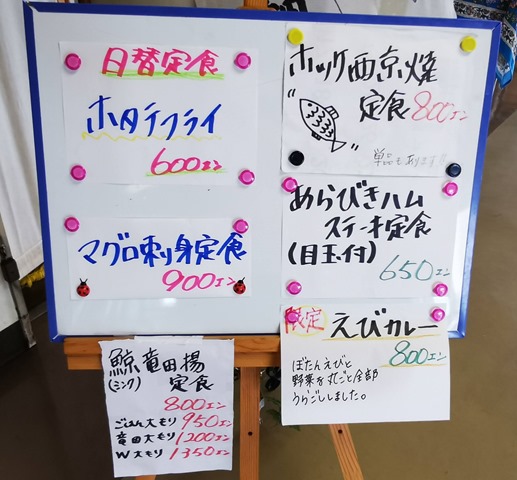 日替定食
ホタテフライ
600エン
マグロ刺り身定食
900エン
ホッケ西京焼
定食800エン
単品もあります!!
あらびきハム
ステーキ定食
(目玉付)
650エン
限定 えびカレー
800エン
ぼたんえびと
野菜を丸ごと全部
うらごししました。
鯨竜田揚
(ミンク) 定食
800エン
ごはん大もり950エン
竜田大もり1200エン
W大もり1350エン